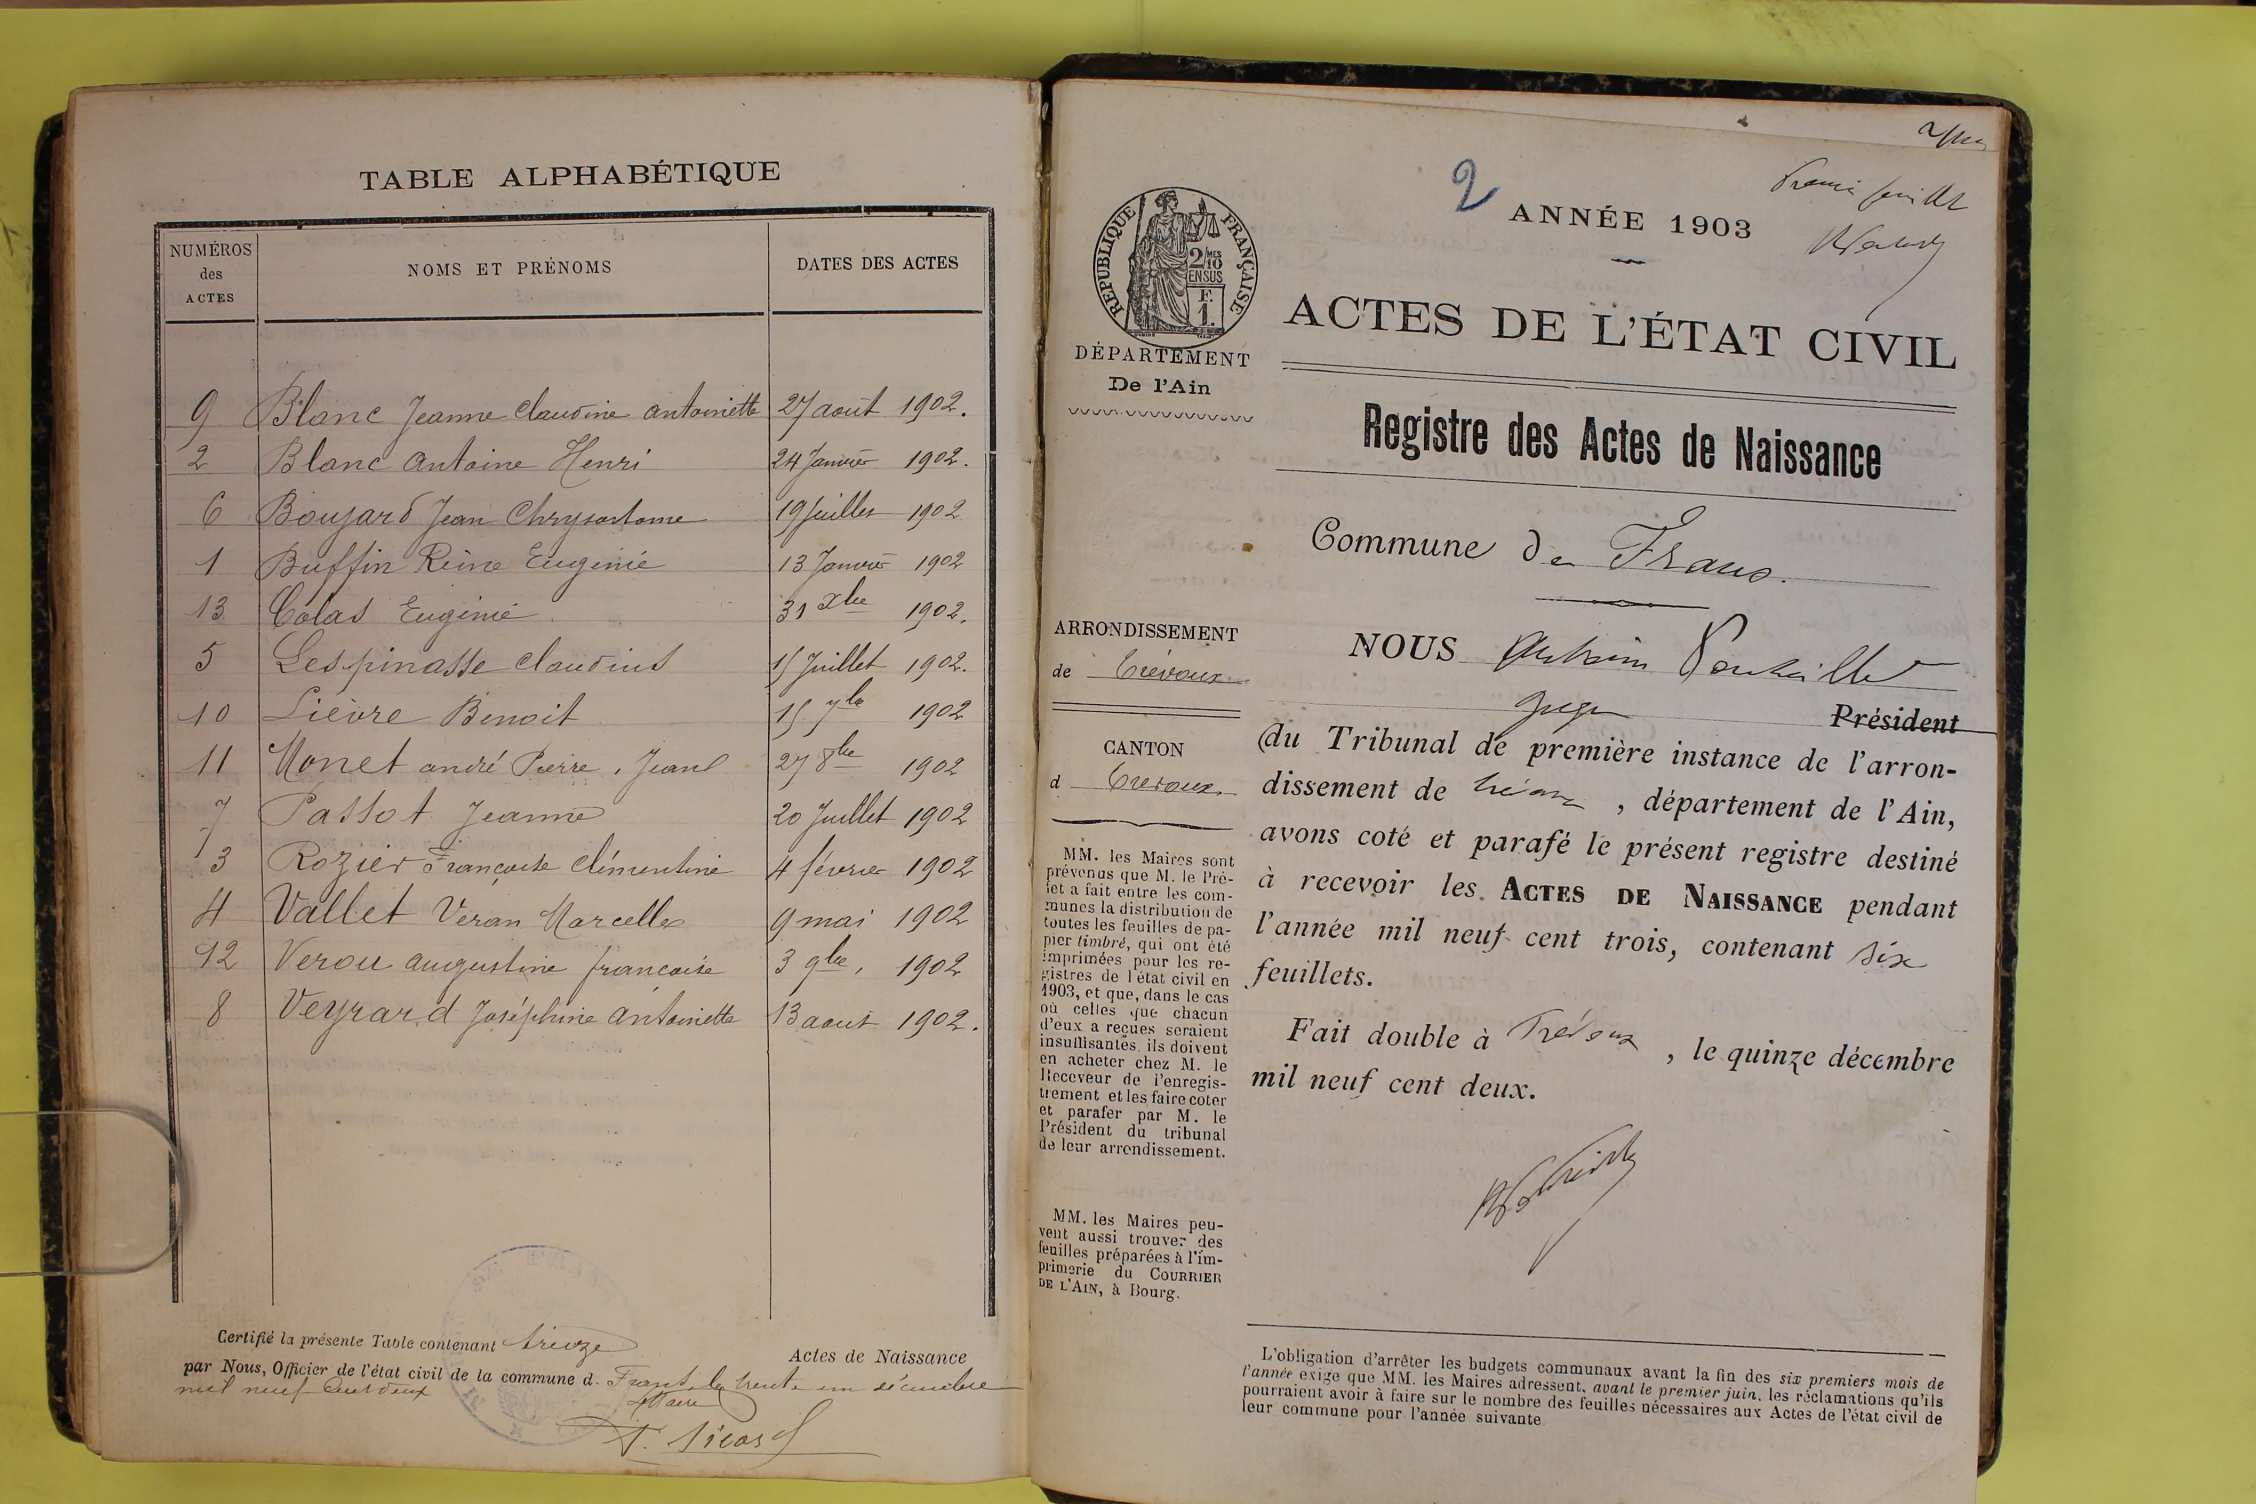 TABLE ALPHABÉTIQUE
NUMÉROS
des
ACTES
NOMS ET PRÉNOMS
DATES DES ACTES
9 Blanc Jeanne Claudine antoinette 27 août 1902.
2 Blanc Antoine Henri 24 Janvier 1902.
6 Boujard Jean Chrysostome 19 Juillet 1902
1 Buffin Reine Eugénie 13 Janvier 1902
13 Colas Eugénie 31 Xbre 1902.
5 Lespinasse Claudius 15 Juillet 1902.
10 Lièvre Benoit 15 7bre 1902
11 Monet andré Pierre, Jean 27 8bre 1902
7 Passot Jeanne 20 Juillet 1902
3 Rozier Françoise Clémentine 4 février 1902
4 Vallet Veran Marcelle 9 mai 1902
12 Verou augustine françoise 3 9bre, 1902
8 Veyrard Joséphine antoinette 13 aout 1902.
Certifié la présente Table contenant treize
Actes de Naissance
par Nous, Officier de l'état civil de la commune d. Frans, le trente un décembre
mil neuf cent deux
Le Maire
2
Premier feuillet
ANNÉE 1903
RÉPUBLIQUE FRANÇAISE
2/10
MES
EN SUS
F.
1.
ACTES DE L'ÉTAT CIVIL
DÉPARTEMENT
De l'Ain
Registre des Actes de Naissance
Commune de Frans.
ARRONDISSEMENT
de Trévoux
CANTON
d Trevoux.
MM. les Maires sont
prévenus que M. le Pré-
fet a fait entre les com-
munes la distribution de
toutes les feuilles de pa-
pier timbré, qui ont été
imprimées pour les re-
gistres de l'état civil en
1903, et que, dans le cas
où celles que chacun
d'eux a reçues seraient
insuffisantes, ils doivent
en acheter chez M. le
Receveur de l'enregis-
trement et les faire coter
et parafer par M. le
Président du tribunal
de leur arrondissement.
MM. les Maires peu-
vent aussi trouver des
feuilles préparées à l'im-
primerie du COURRIER
DE L'AIN, à Bourg.
NOUS
Juge Président
du Tribunal de première instance de l'arron-
dissement de Trévoux, département de l'Ain,
avons coté et parafé le présent registre destiné
à recevoir les ACTES DE NAISSANCE pendant
l'année mil neuf cent trois, contenant six
feuillets.
Fait double à Trévoux, le quinze décembre
mil neuf cent deux.
L'obligation d'arrêter les budgets communaux avant la fin des six premiers mois de
l'année exige que MM. les Maires adressent, avant le premier juin, les réclamations qu'ils
pourraient avoir à faire sur le nombre des feuilles nécessaires aux Actes de l'état civil de
leur commune pour l'année suivante